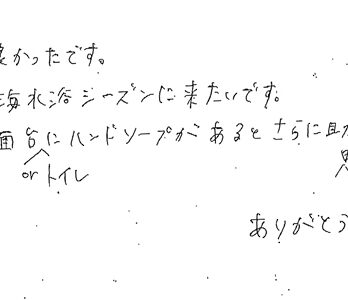 良かったです。
海水浴シーズンに来たいです。
面台にハンドソープがあるとさらに
orトイレ
ありがとう